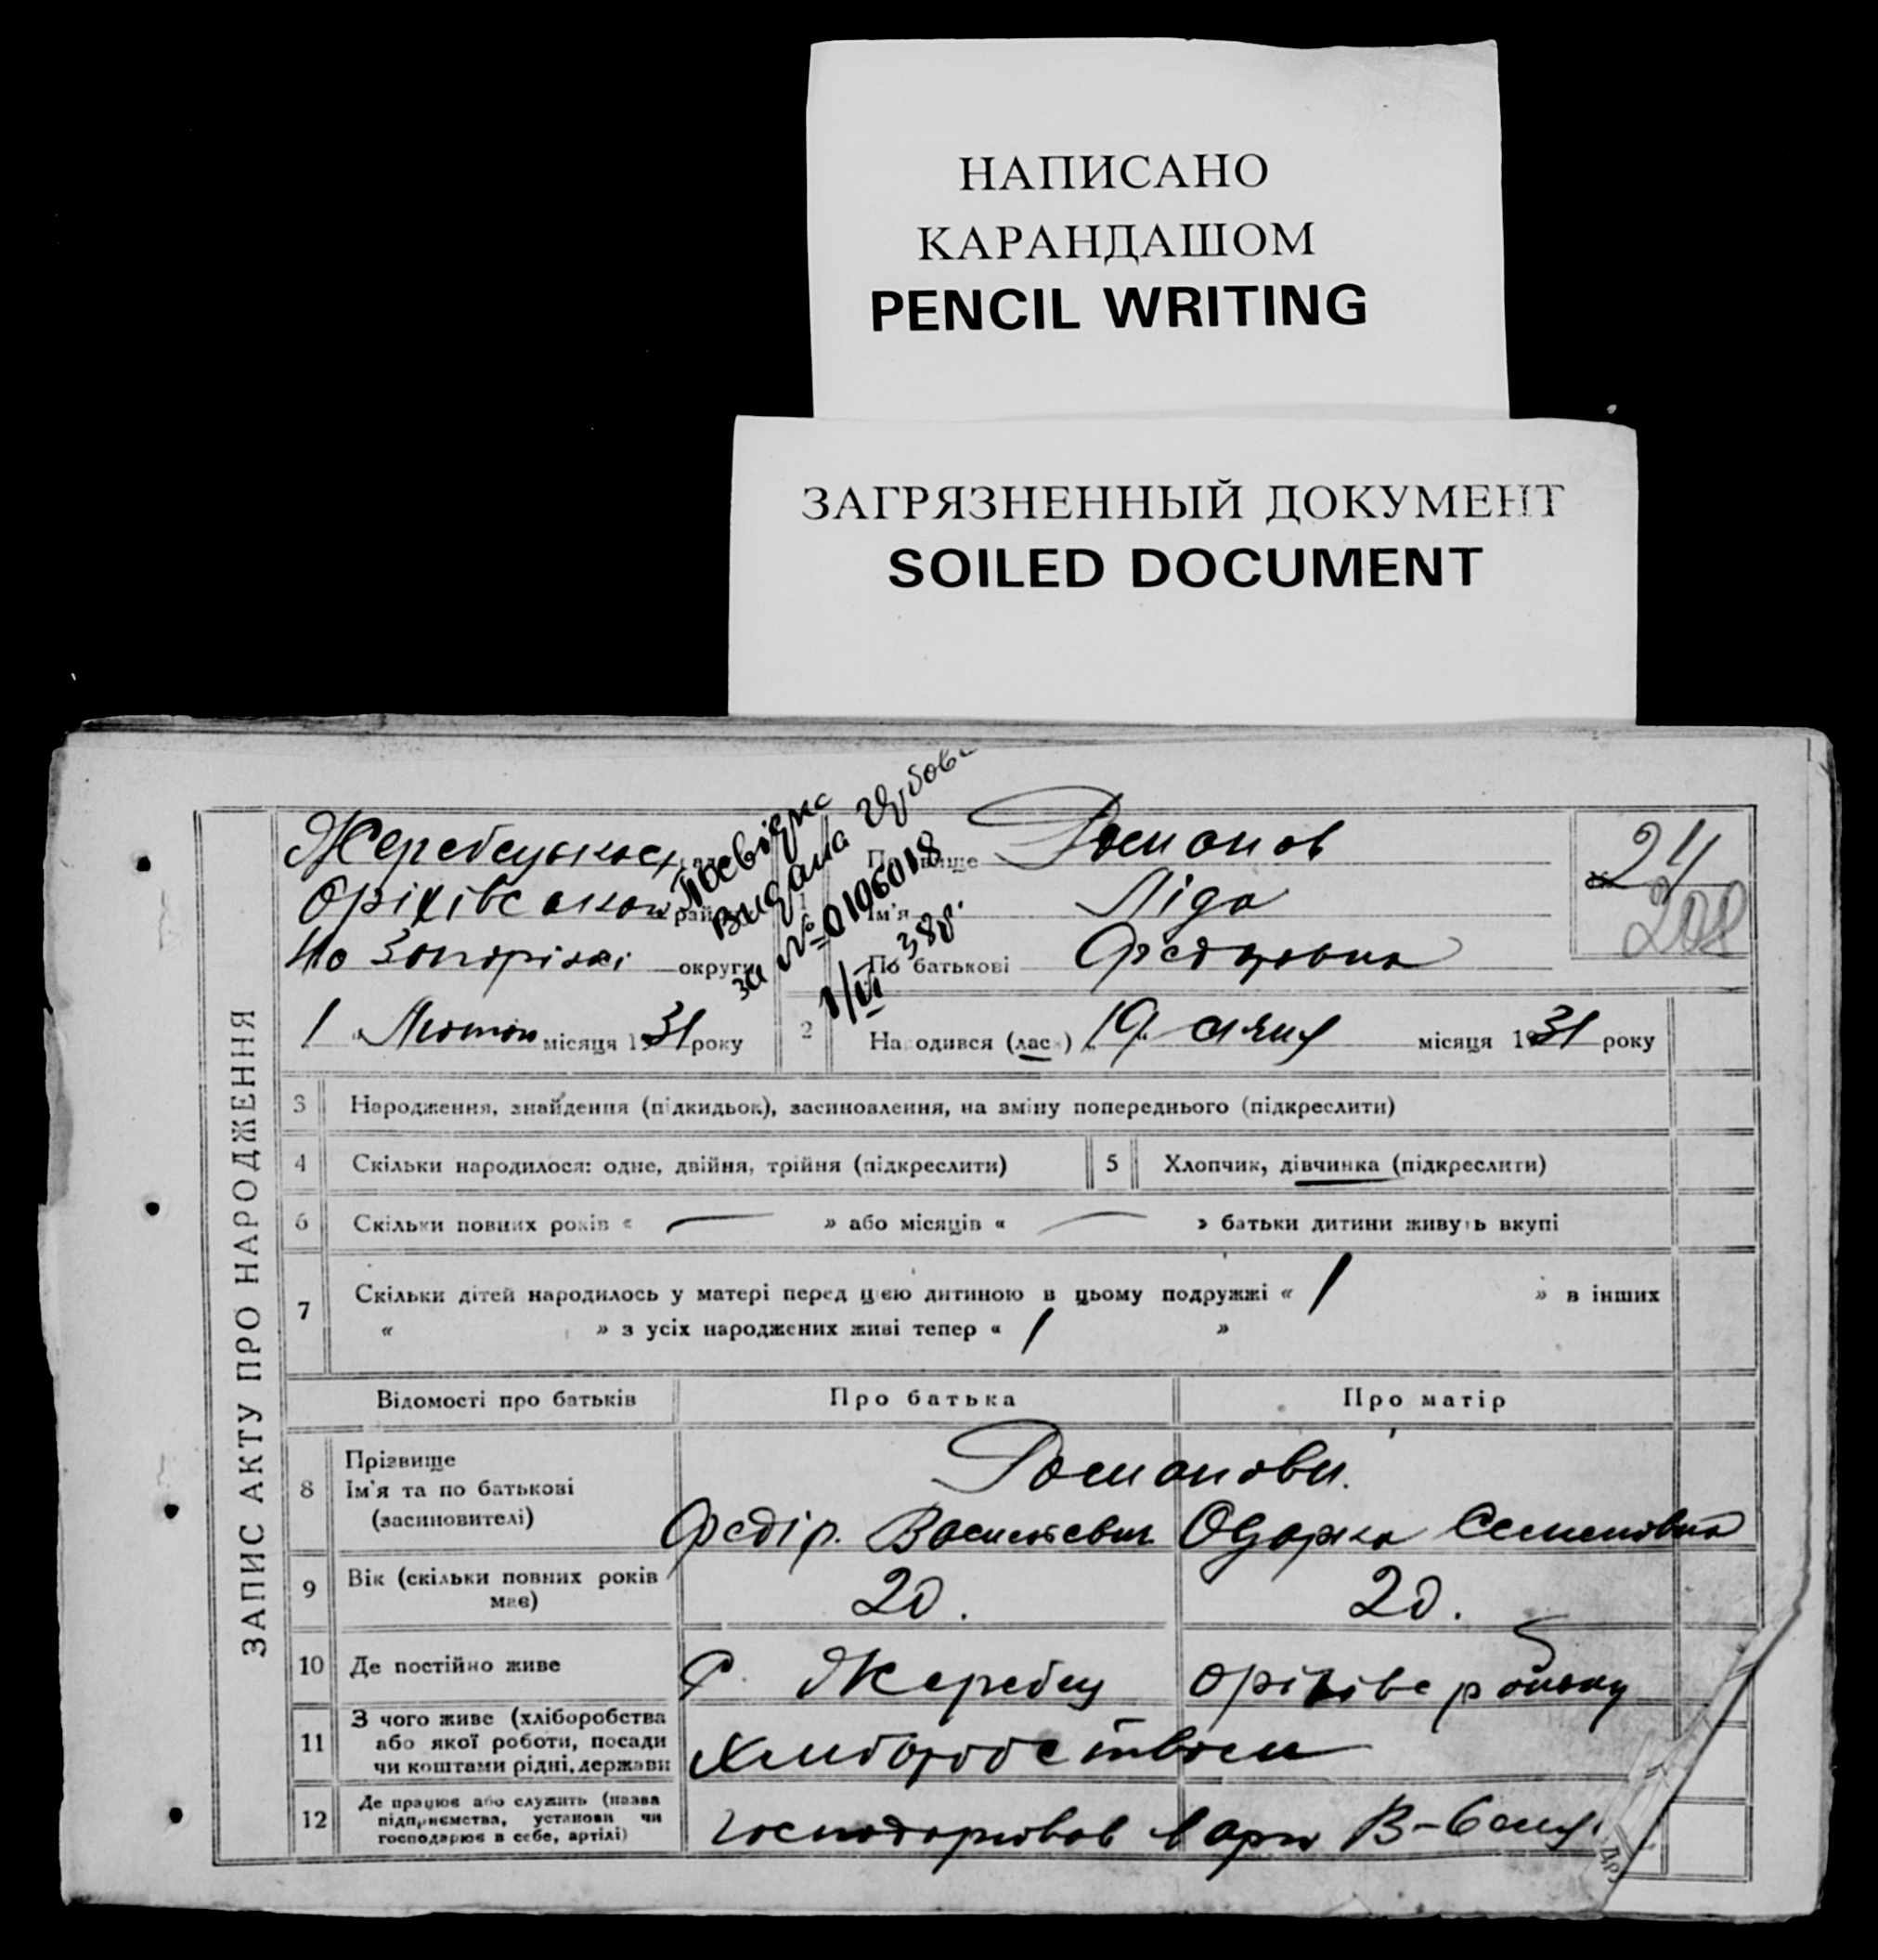 НАПИСАНО
КАРАНДАШОМ
PENCIL WRITING
ЗАГРЯЗНЕННЫЙ ДОКУМЕНТ
SOILED DOCUMENT
ЗАПИС АКТУ ПРО НАРОДЖЕННЯ
Посвідка
видана
за № 0106018
1/VI 38р.
Прізвище Романов
Оріхівської рай
Ім'я Ліда
На Запоріжжі округи
По батькові Федоровна
1 Лютого місяця 1931 року
2 Народився (лась) 19 січня місяця 1931 року
24
208
3 Народження, знайдення (підкидьок), засиновлення, на зміну попереднього (підкреслити)
4 Скільки народилося: одне, двійня, трійня (підкреслити) 5 Хлопчик, дівчинка (підкреслити)
6 Скільки повних років « — » або місяців « — » батьки дитини живуть вкупі
7 Скільки дітей народилось у матері перед цією дитиною в цьому подружжі « 1 » в інших
« » з усіх народжених живі тепер « 1 »
Відомості про батьків Про батька Про матір
8 Прізвище Романови.
Ім'я та по батькові
(засиновителі) Федір Васильевич Одарка Семеновна
9 Вік (скільки повних років
має) 20. 20.
10 Де постійно живе С. Жеребец Оріхівс району
11 З чого живе (хліборобства
або якої роботи, посади
чи коштами рідні, держави Хліборобством
12 Де працює або служить (назва
підприємства, установи чи
господарює в себе, артілі)